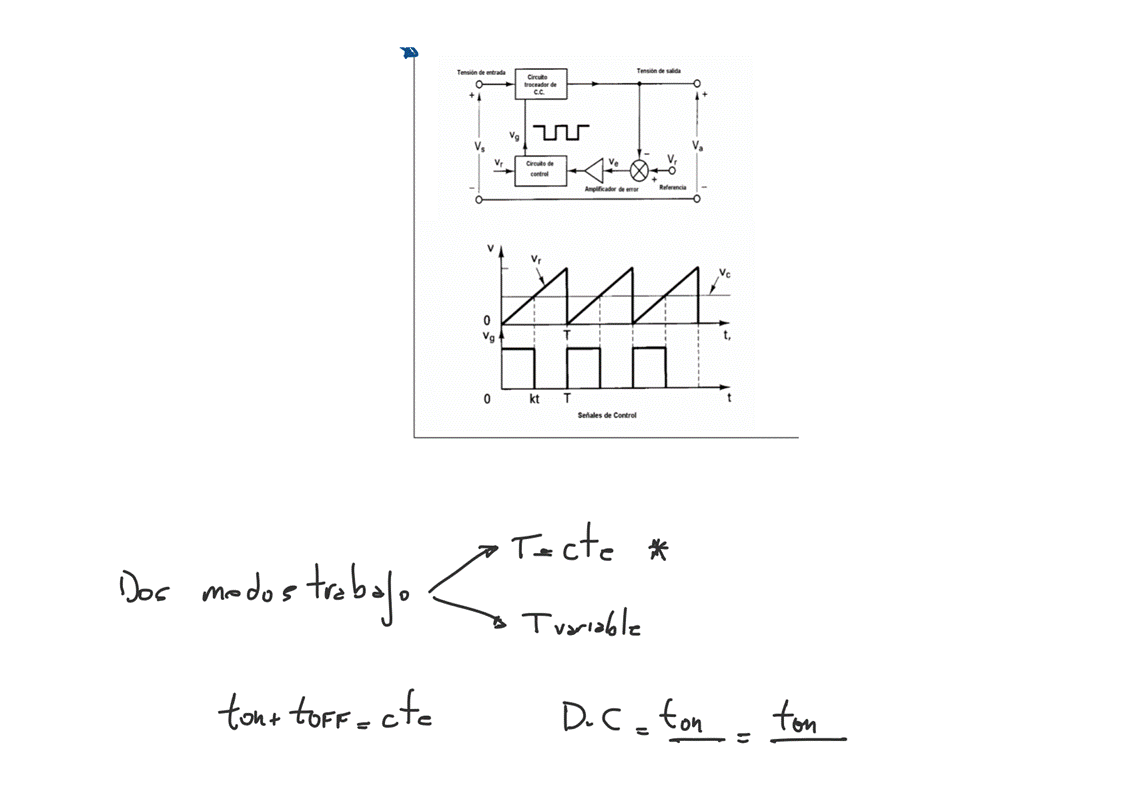 Tensión de entrada
Circuito
troceador de
C.C.
Tensión de salida
+
+
Vg
Vs
Va
Vr
Circuito de
control
Ve
Amplificador de error
−
+
Vr
Referencia
−
−
V
Vr
Vc
0
T
t,
Vg
0
kt
T
t
Señales de Control
Dos modos trabajo
T=cte *
T variable
ton + tOFF = cte
D.C = ton = ton